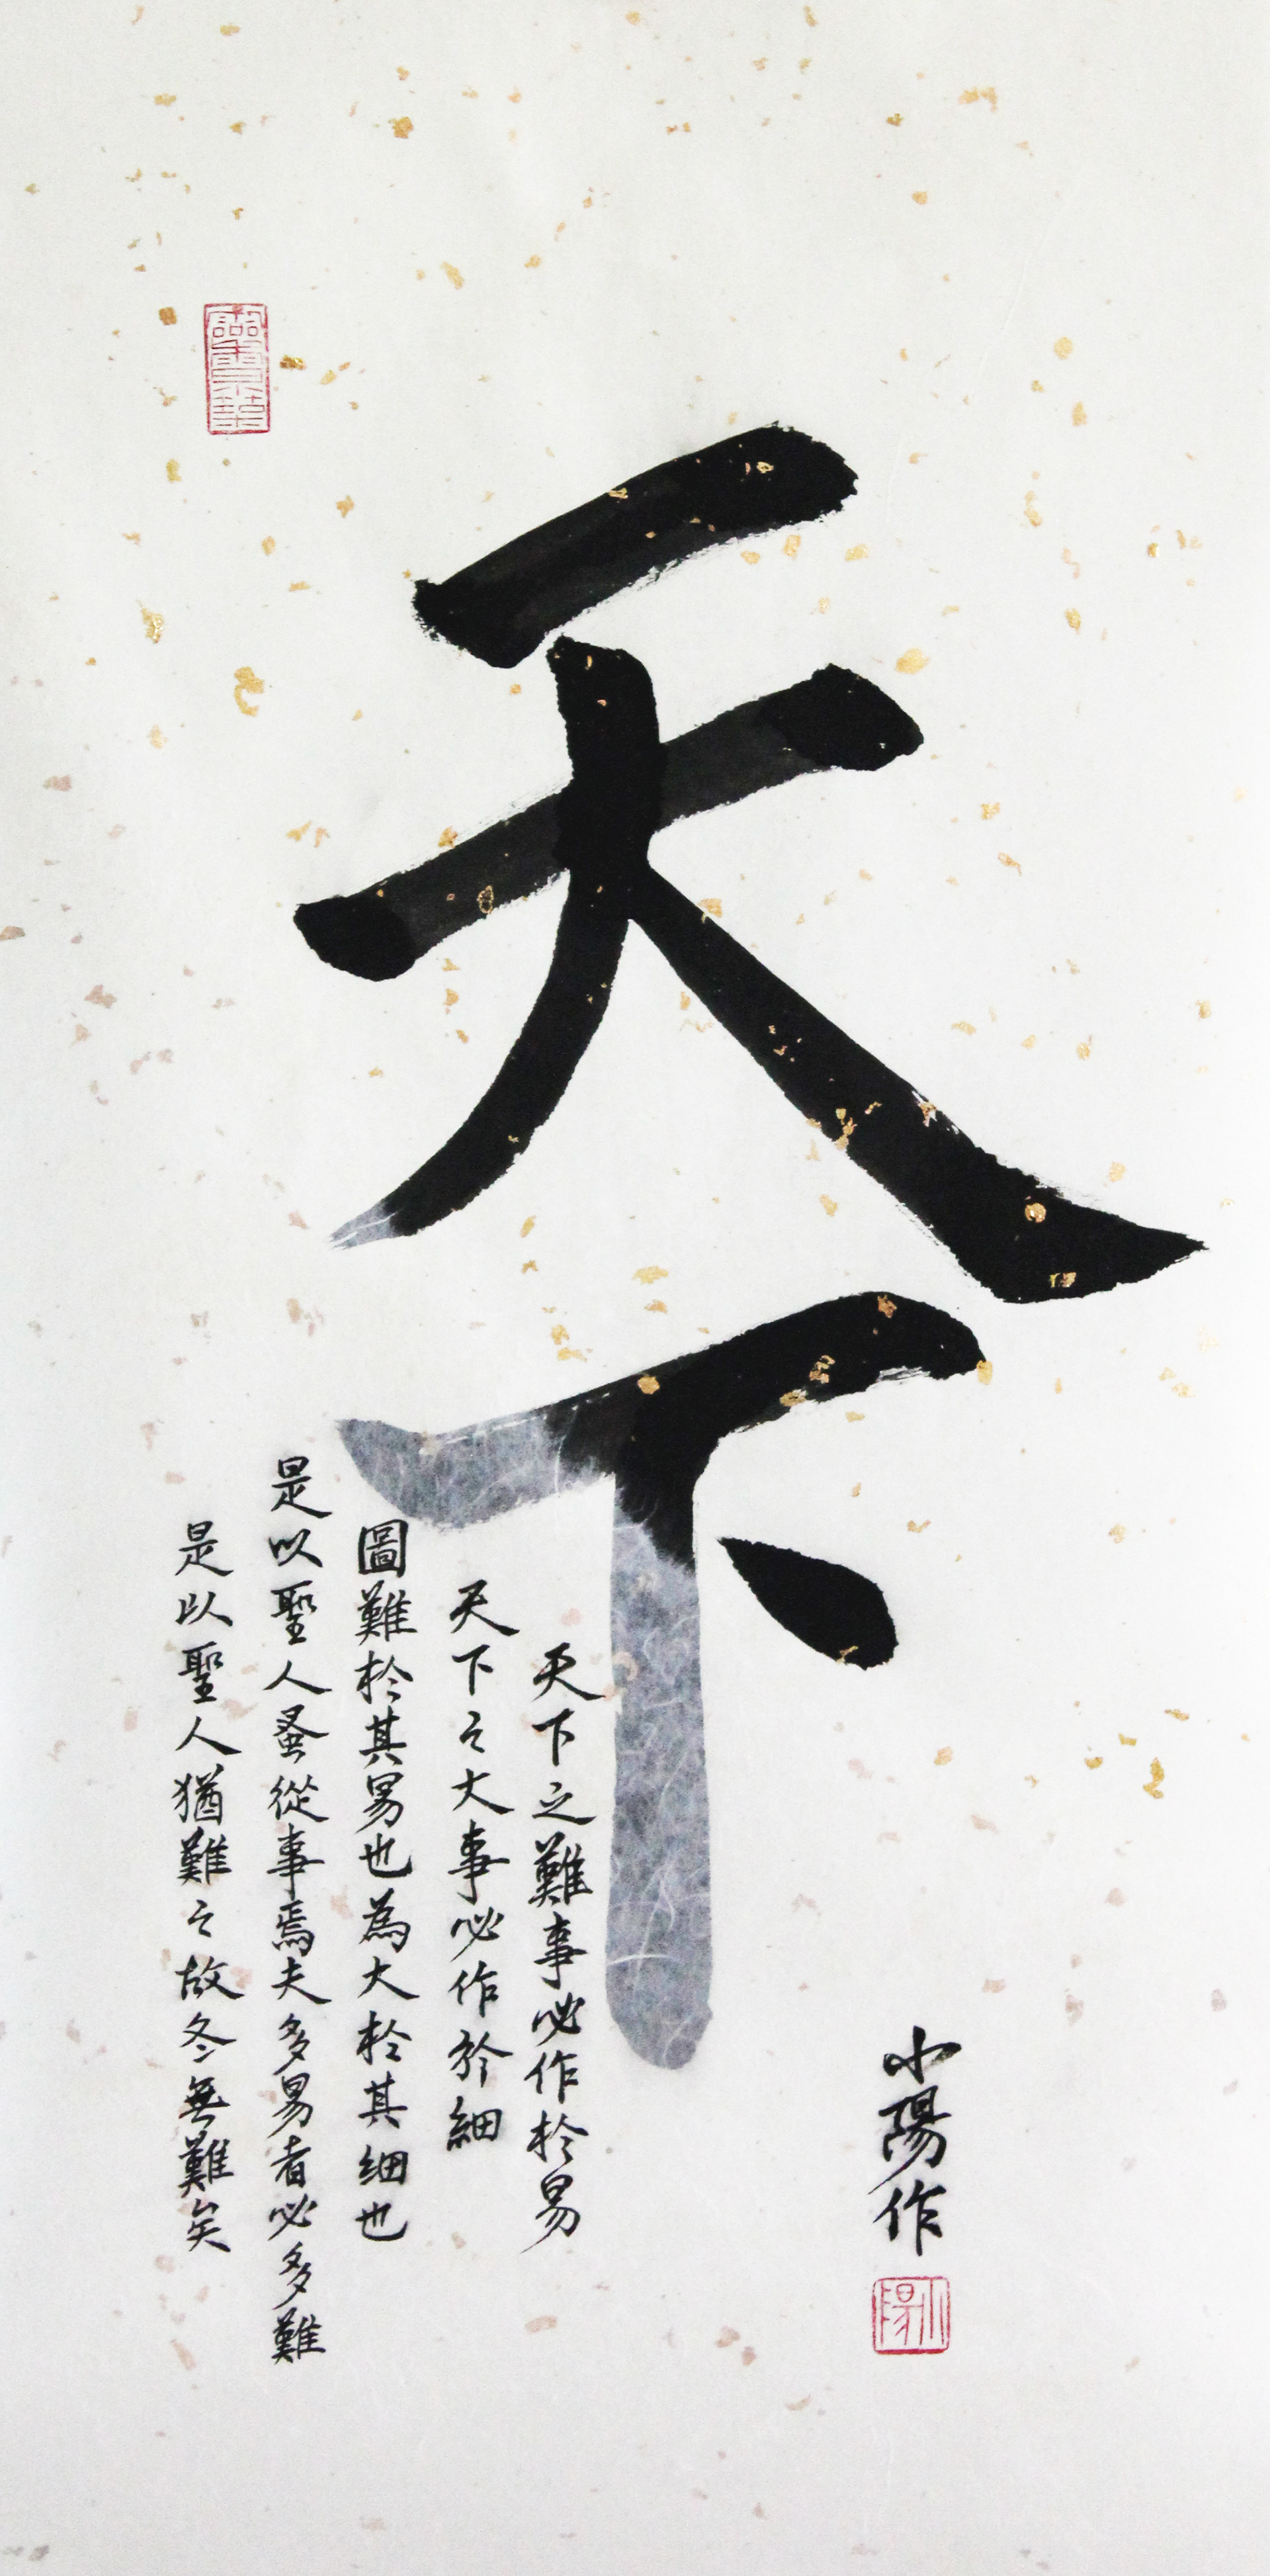 天下
天下之難事必作於易
天下之大事必作於細
圖難於其易也為大於其細也
是以聖人蚤從事焉夫多易者必多難
是以聖人猶難之故冬無難矣
小陽作
小陽